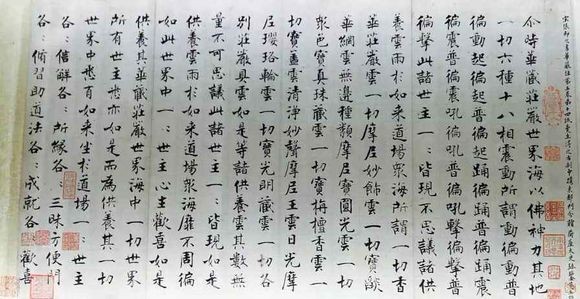 尒時華藏莊嚴世界海以佛神力其地
一切六種十八相震動所謂動徧動普
徧動起徧起普徧起踊徧踊普徧踊震
徧震普徧震吼徧吼普徧吼擊徧擊普
徧擊此諸世主一：皆現不思議諸供
養雲雨於如來道場衆海所謂一切香
華莊嚴雲一切摩尼妙飾雲一切寶燄
華網雲無邊種類摩尼寶圓光雲一切
衆色寶真珠藏雲一切寶栴檀香雲一
切寶蓋雲清淨妙聲摩尼王雲日光摩
尼瓔珞輪雲一切寶光明藏雲一切各
別莊嚴具雲如是等諸供養雲其數無
量不可思議此諸世主一：皆現如是
供養雲雨於如來道場衆海靡不周徧
如此世界中一：世主心生歡喜如是
供養其華藏莊嚴世界海中一切世界
所有世主悉亦如是而為供養其一切
世界中悉有如來坐於道場一：世主
各：信解各：所緣各：三昧方便門
各：脩習助道法各：成就各：歡喜